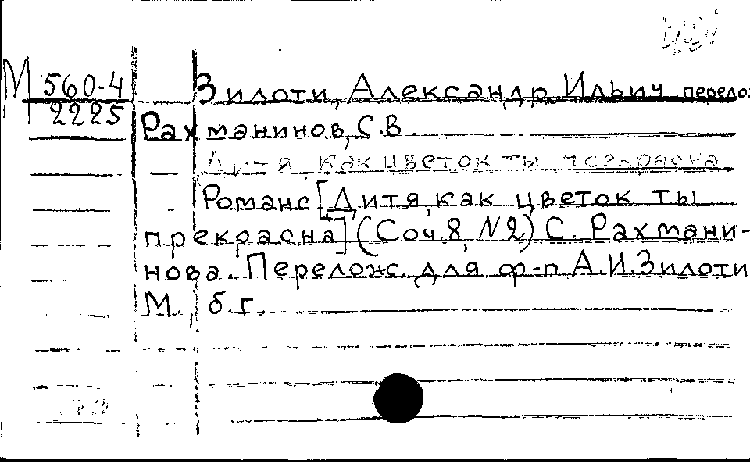 М 560-4
2225
Зилоти, Александр Ильич перелож.
Рахманинов, С.В.
Дитя, как цветок ты прекрасна
Романс [Дитя, как цветок ты
прекрасна] (Соч. 8, № 2) С. Рахмани-
нова. Перелож. для ф-п А.И. Зилоти
М., б.г.